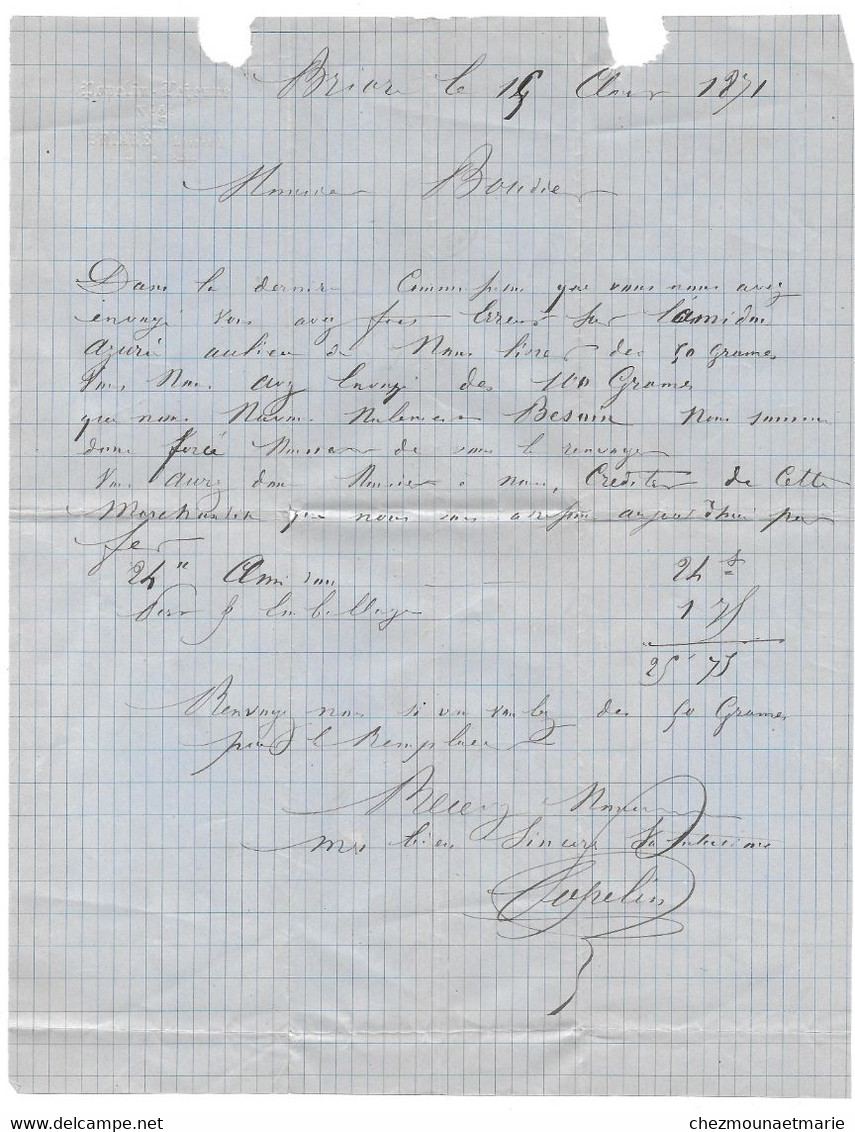 Briare le 15 Aout 1871
Monsieur Boudier
Dans la derniere Commission que vous nous avez
envoyé Vous avez fais Erreur sur l'amidon
azuré aulieu de Nous livrer des 50 grames
Vous Nous avez Envoyé des 100 Grames
que nous Navons Nulement Besoin Nous sommes
donc forcé Monsieur de vous le renvoyer
Vous aurez donc Monsieur a nous Crediter de Cette
Marchandise que nous vous adressons aujourd'hui par
fer
24 " Amidon 24 f
Port & Emballage 1 75
25 75
Renvoyez nous si vous voulez des 50 Grames
pour le Remplacer
Recevez Monsieur
mes bien Sincere Salutations
chezmounaetmarie